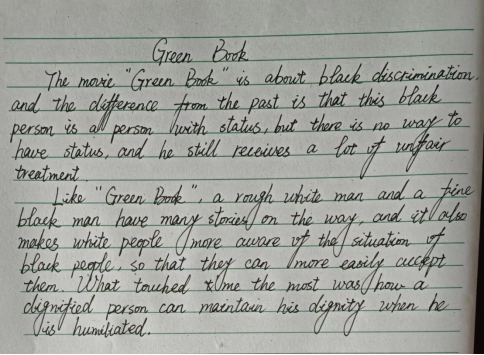 Green Book
The movie "Green Book" is about black discrimination.
and the difference from the past is that this black
person is a person with status, but there is no way to
have status, and he still receives a lot of unfair
treatment.
Like "Green Book", a rough white man and a fine
black man have many stories on the way, and it also
makes white people more aware of the situation of
black people, so that they can more easily accept
them. What touched me the most was how a
dignified person can maintain his dignity when he
is humiliated.